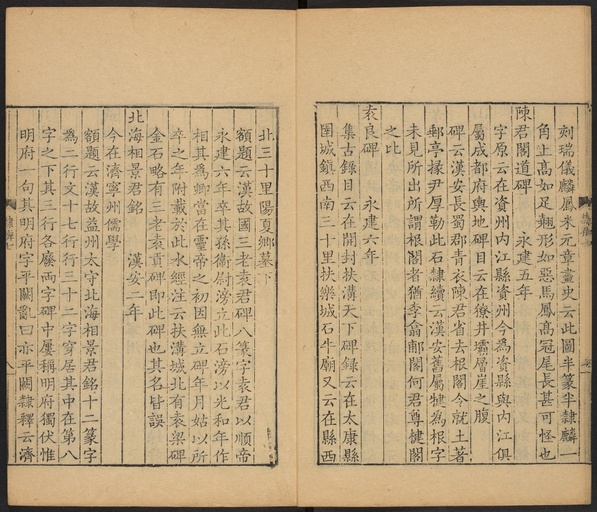 刻瑞儀麟鳳米元章畫史云此圖半篆半隸麟一
角止高如足翹形如惡馬鳳高冠尾長甚可怪也
陳君閣道碑 永建五年
字原云在資州內江縣資州今為資縣與內江俱
屬成都府輿地碑目云在獠井壩層崖之腹
碑云漢安長蜀郡青衣陳君省去根閣今就土著
郵亭掾尹厚勒此石隸續云漢安舊屬犍為根字
未見所出所謂根閣者猶李翕郙閣何君尊楗閣
之比
袁良碑 永建六年
集古錄目云在開封扶溝天下碑錄云在太康縣
圉城鎮西南三十里扶樂城石牛廟又云在縣西
北三十里陽夏鄉墓下
額題云漢故國三老袁君碑八篆字袁君以順帝
永建六年卒其孫衛尉滂立此石滂以光和年作
相其為卿當在靈帝之初因無立碑年月姑以所
卒之年附載於此水經注云扶溝城北有袁梁碑
金石略有三老袁貢碑即此碑也其名皆誤
北海相景君銘 漢安二年
今在濟寧州儒學
額題云漢故益州太守北海相景君銘十二篆字
為二行文十七行行三十二字穿居其中在第八
字之下其三行各廢兩字碑中屢稱明府獨伏惟
明府一句其明府字平闕亂曰亦平闕隸釋云濟